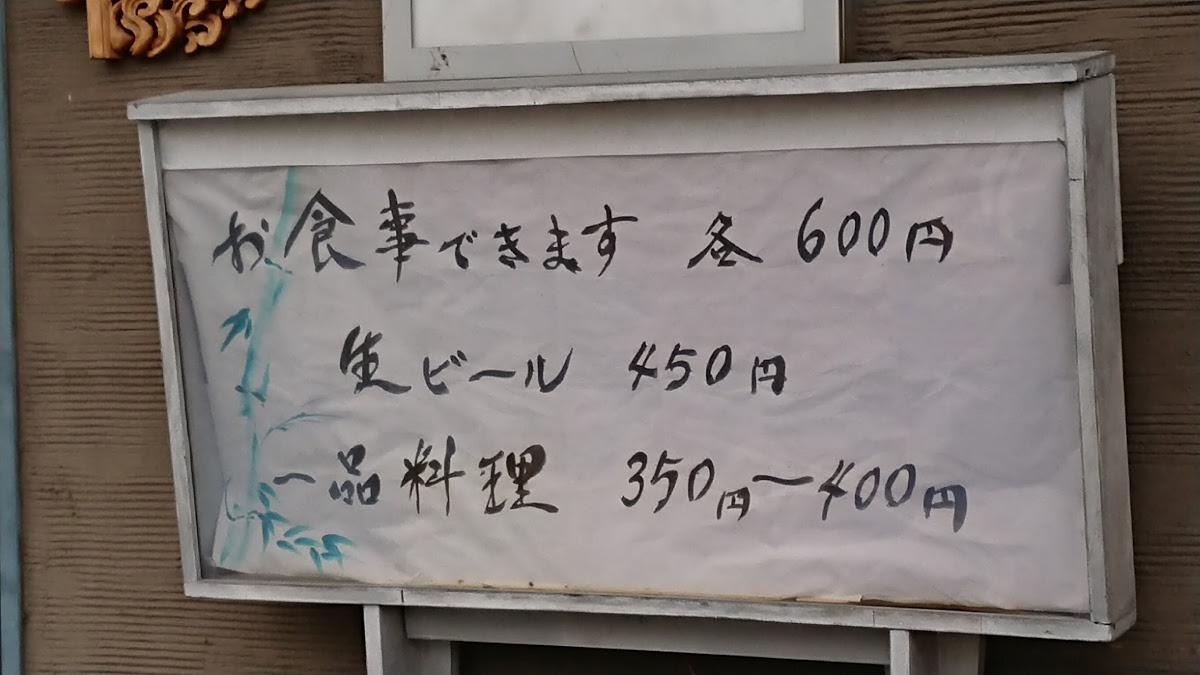 お食事できます 各 600円
生ビール 450円
一品料理 350円〜400円